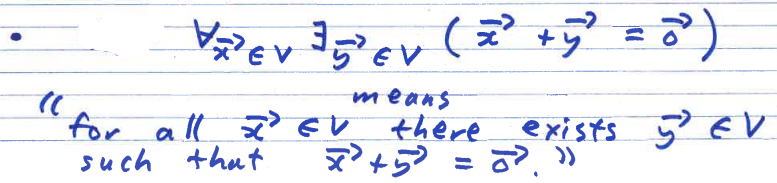 • ∀x⃗ ∈ V ∃y⃗ ∈ V ( x⃗ + y⃗ = 0⃗ )
means
"for all x⃗ ∈ V there exists y⃗ ∈ V
such that x⃗ + y⃗ = 0⃗."